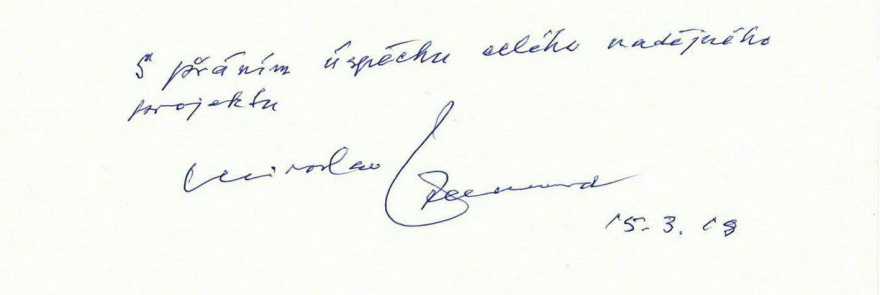 S přáním úspěchu celého nadějného
projektu
Miroslav
15.3.18